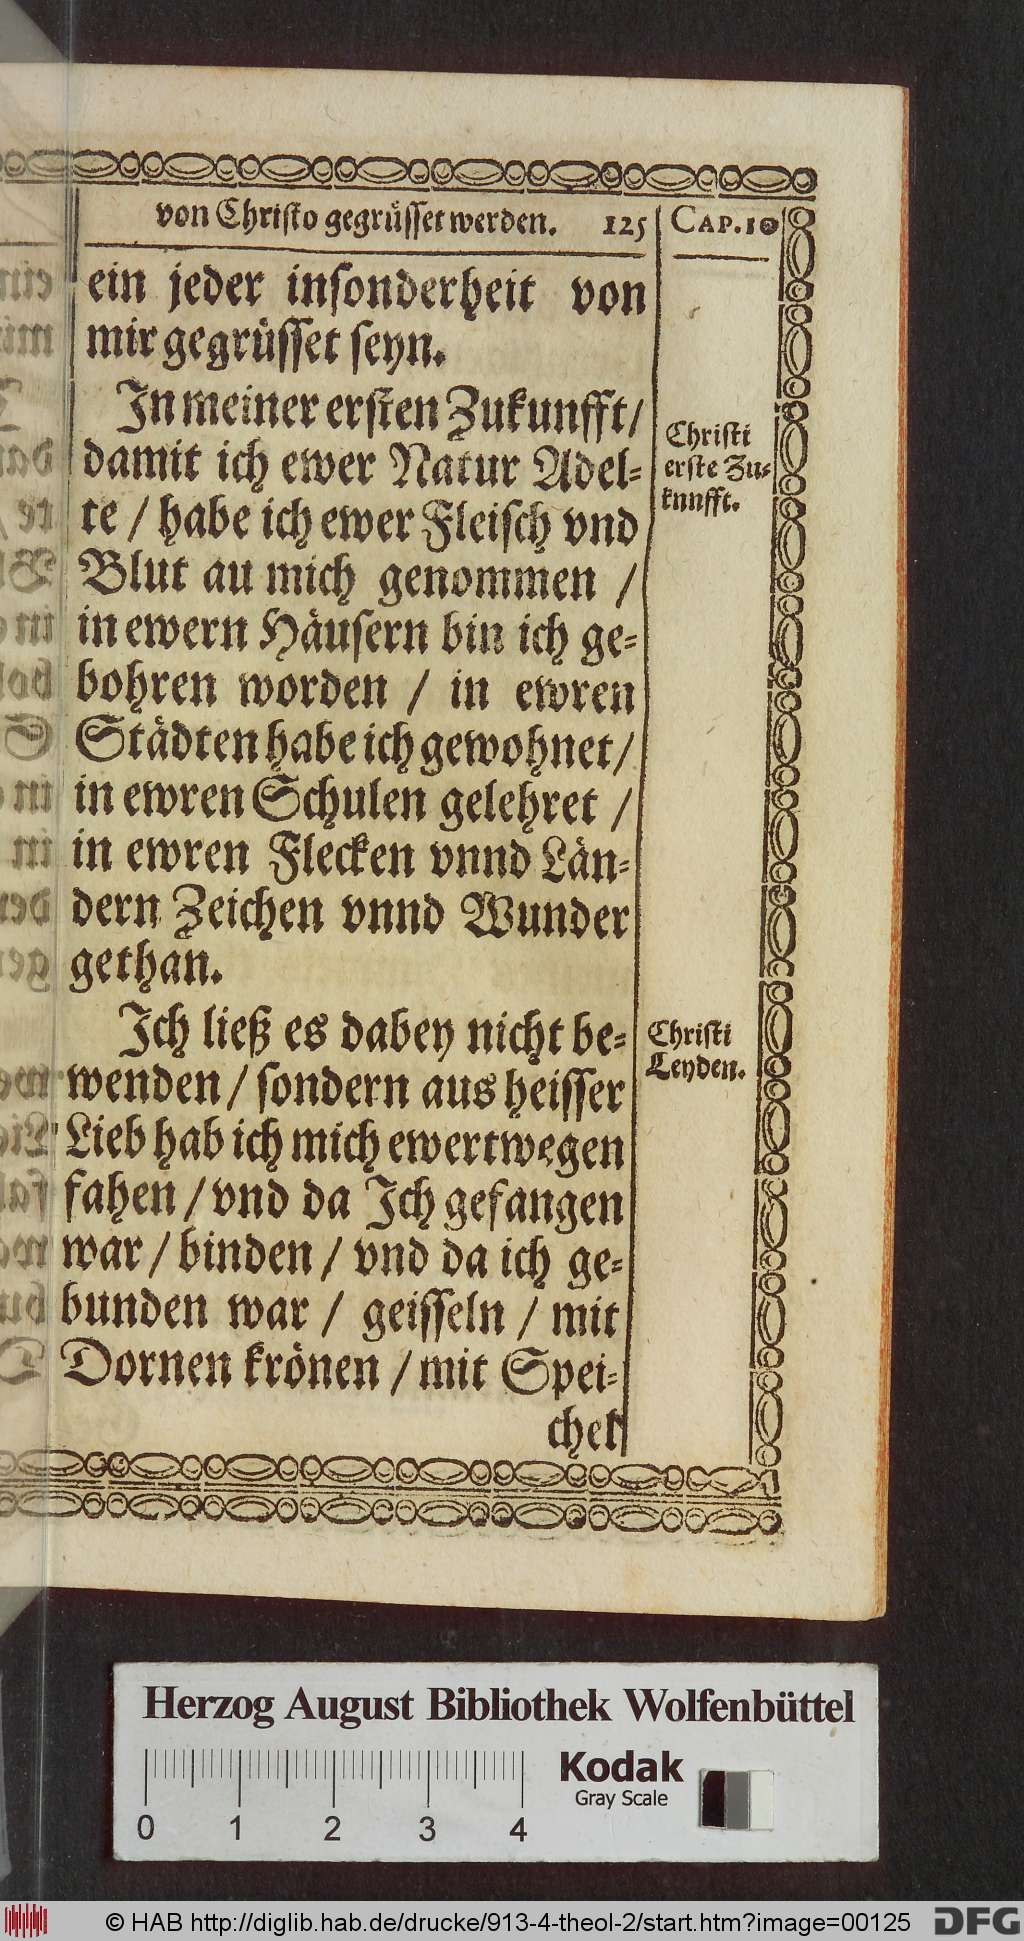 von Christo gegrüsset werden. 125 CAP. 10
ein jeder insonderheit von
mir gegrüsset seyn.
In meiner ersten Zukunfft/
damit ich ewer Natur Adel-
te / habe ich ewer Fleisch vnd
Blut au mich genommen /
in ewern Häusern bin ich ge-
bohren worden / in ewren
Städten habe ich gewohnet/
in ewren Schulen gelehret /
in ewren Flecken vnnd Län-
dern Zeichen vnnd Wunder
gethan.
Christi
erste Zu-
kunfft.
Ich ließ es dabey nicht be-
wenden / sondern aus heisser
Lieb hab ich mich ewertwegen
fahen / vnd da Ich gefangen
war / binden / vnd da ich ge-
bunden war / geisseln / mit
Dornen krönen / mit Spei-
chel
Christi
Leyden.
Herzog August Bibliothek Wolfenbüttel
0 1 2 3 4
Kodak
Gray Scale
© HAB http://diglib.hab.de/drucke/913-4-theol-2/start.htm?image=00125
DFG